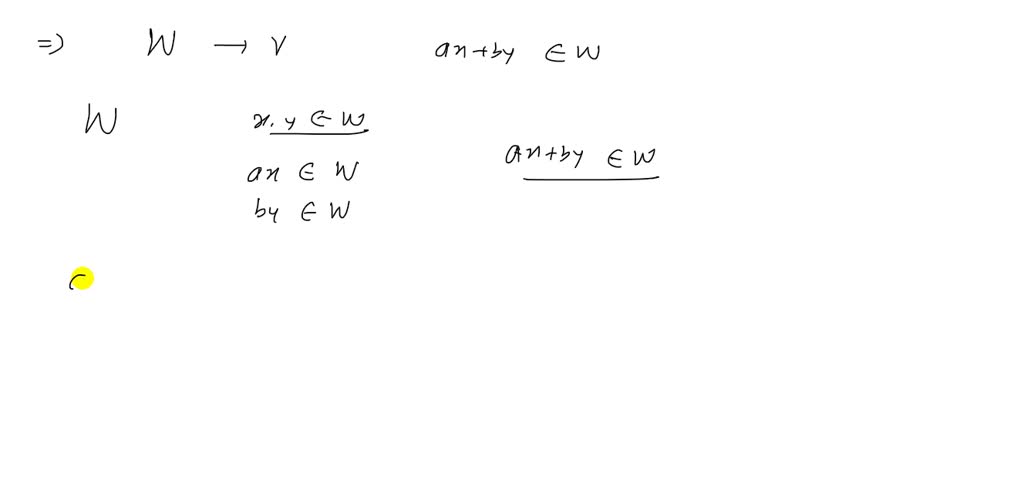 ⇒) W → V ax+by ∈ W
W x, y ∈ W
ax ∈ W ax+by ∈ W
by ∈ W